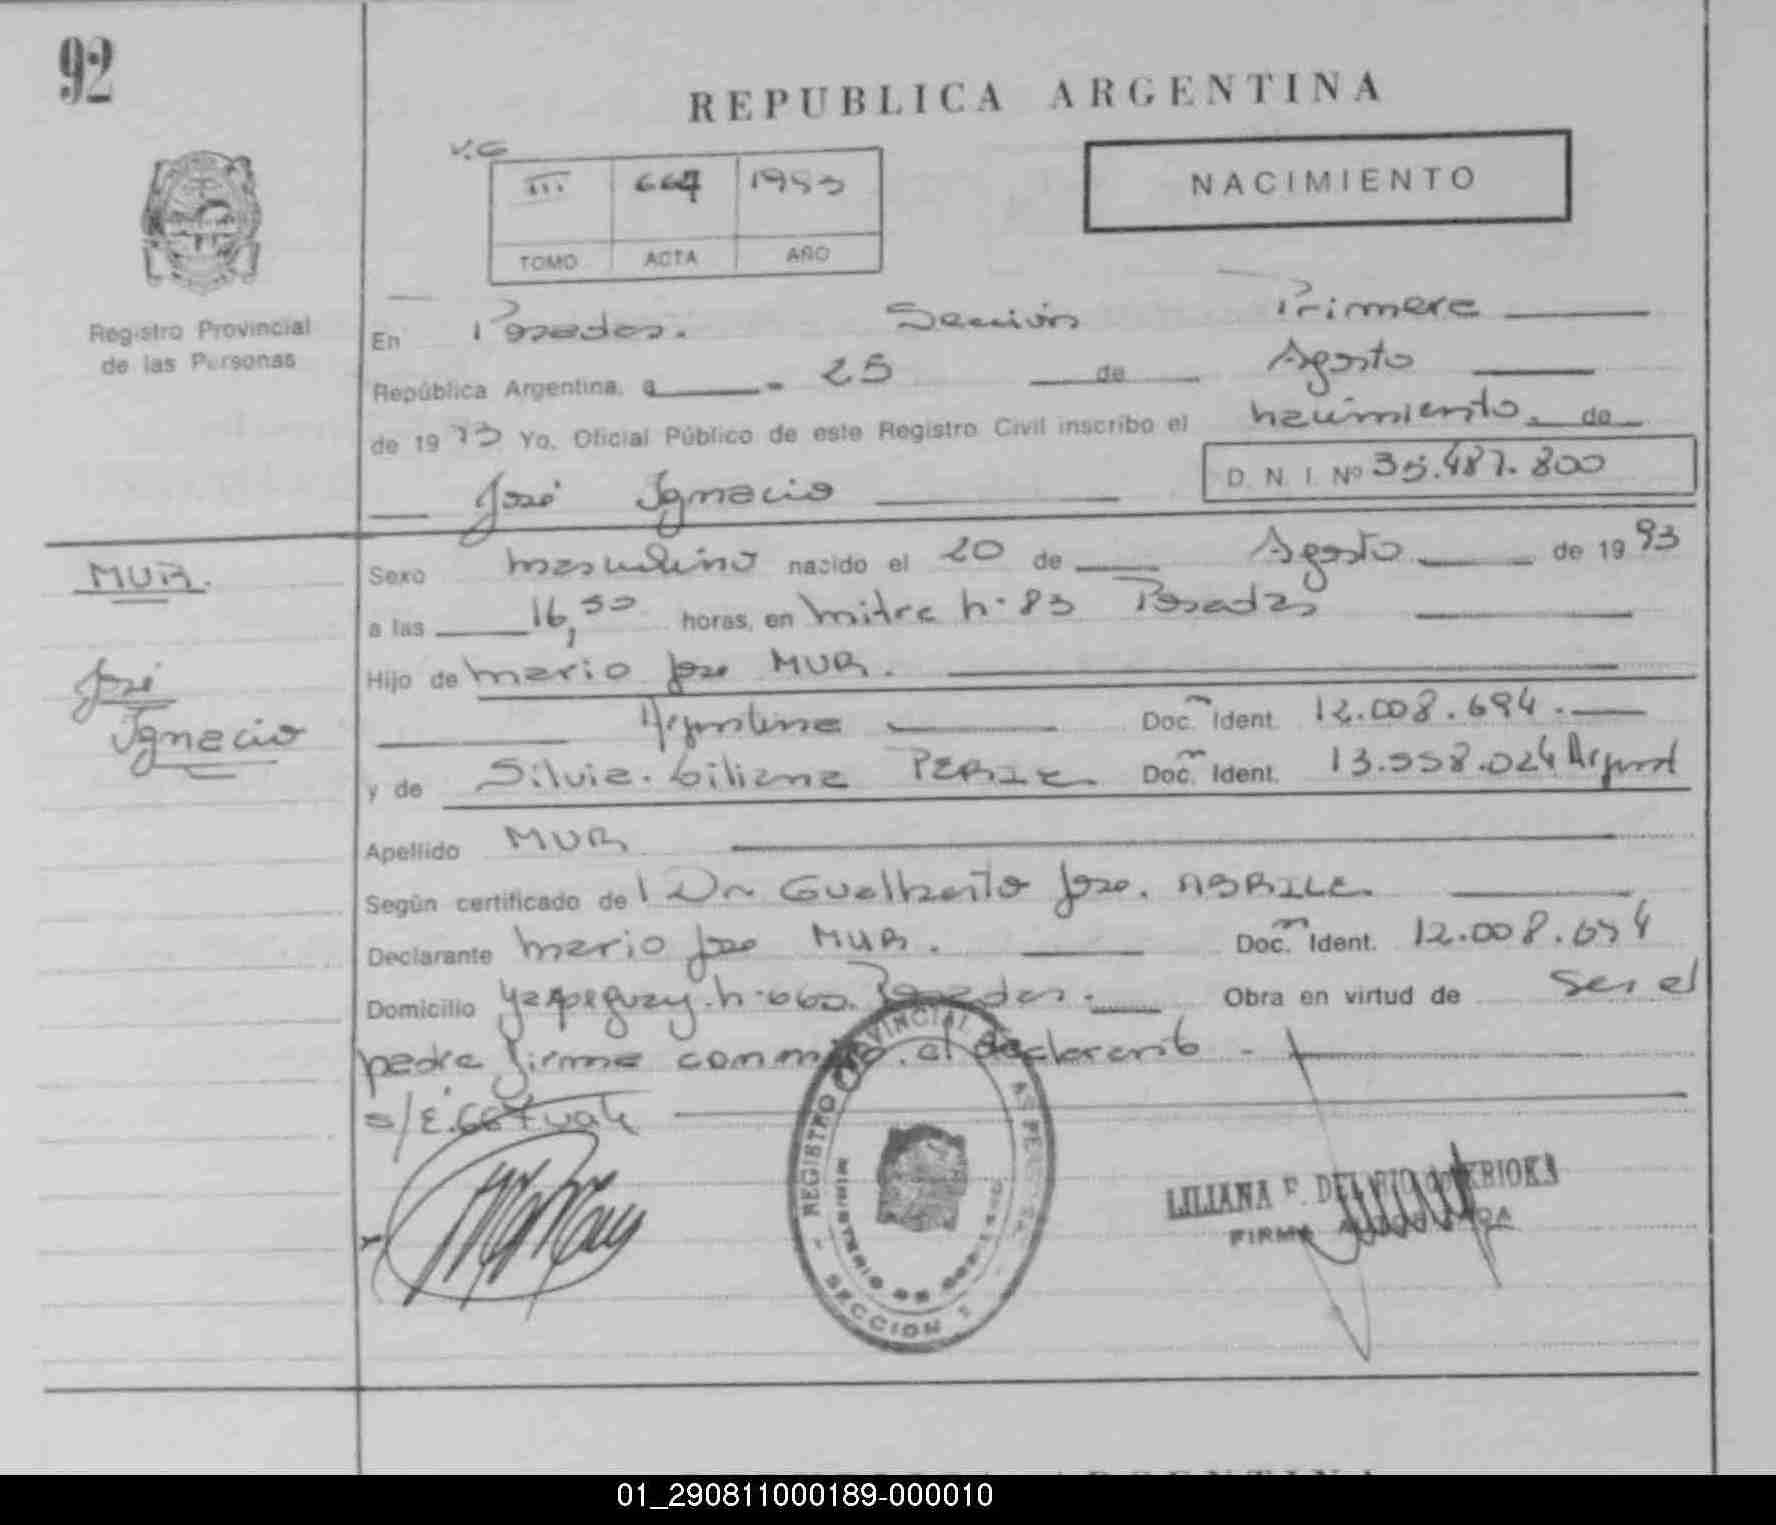 92
REPUBLICA ARGENTINA
V.G
III 667 1993
TOMO ACTA AÑO
NACIMIENTO
Registro Provincial
de las Personas
En Posadas. Sección Primera
República Argentina, a 25 de Agosto
de 1993 Yo, Oficial Público de este Registro Civil inscribo el nacimiento de
José Ignacio D. N. I. Nº 35.487.800
MUR.
José
Ignacio
Sexo masculino nacido el 20 de Agosto de 1993
a las 16,50 horas, en mitre n. 83 Posadas
Hijo de mario Jose MUR.
Argentina Doc. Ident. 12.008.694.
y de Silvia Liliana Doc. Ident. 13.558.024
Apellido MUR
Según certificado del Dr Gualberto Jose. ABRILE.
Declarante mario Jose MUR. Doc. Ident. 12.008.694
Domicilio Yapeguay n. 660. Posadas. Obra en virtud de ser el
padre firma conmigo el declarante
s/E. 667 vale
REGISTRO PROVINCIAL DE LAS PERSONAS
MINISTERIO DE GOBIERNO
SECCION 1
LILIANA F. DEL RIO de
FIRMA AUTORIZADA
01_290811000189-000010